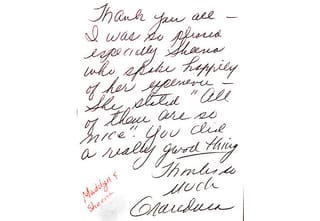 Thank you all -
I was so
especially Sheena
who spoke happily
of her experience -
She stated "All
of them are so
nice". You did
a really good thing
Thanks so
much
Madilyn &
Sheena